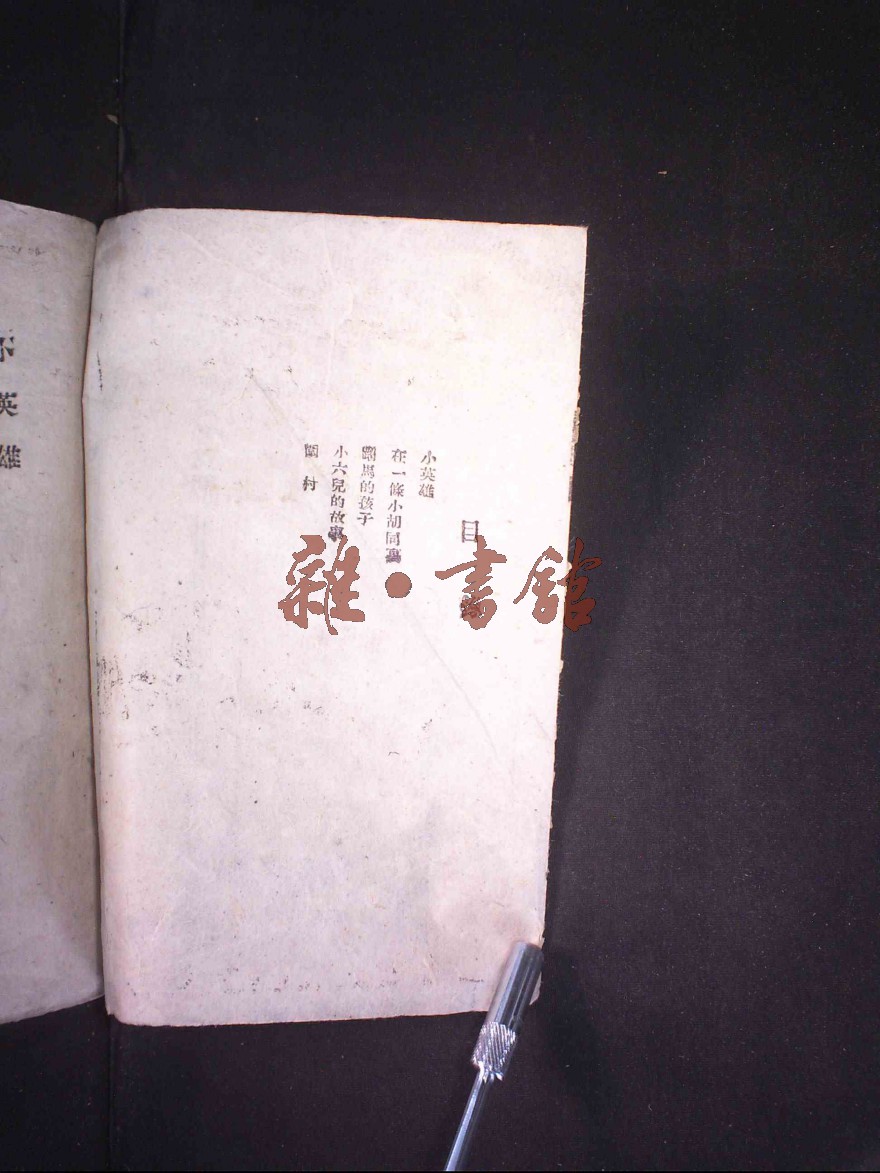 目錄
小英雄
在一條小胡同裏
馬的孩子
小六兒的故事
村
小英雄
雜·書館